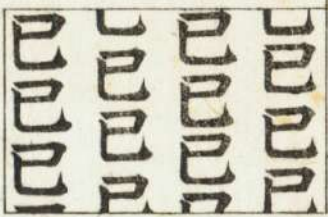 巳巳巳
巳巳巳
巳巳
巳巳巳